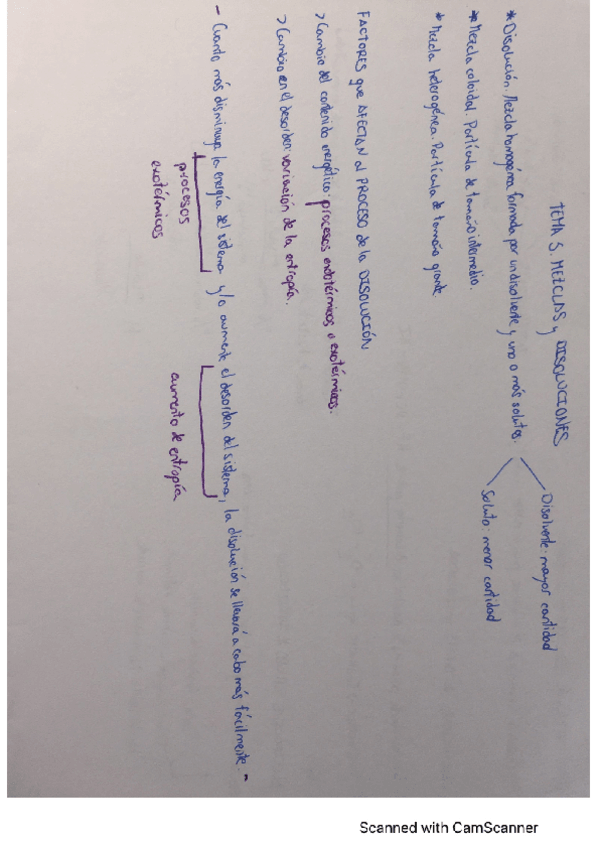 TEMA 5. MEZCLAS y DISOLUCIONES
* Disolución. Mezcla homogénea formada por un disolvente y uno o más solutos.
Disolvente: mayor cantidad
Soluto: menor cantidad
* Mezcla coloidal. Partícula de tamaño intermedio.
* Mezcla heterogénea. Partícula de tamaño grande.
FACTORES que AFECTAN al PROCESO de la DISOLUCIÓN
> Cambio del contenido energético: procesos endotérmicos o exotérmicos.
> Cambio en el desorden: variación de la entropía.
- Cuanto más disminuya la energía del sistema y/o aumente el desorden del sistema, la disolución se llevará a cabo más fácilmente -
procesos
exotérmicos
aumento de entropía
Scanned with CamScanner